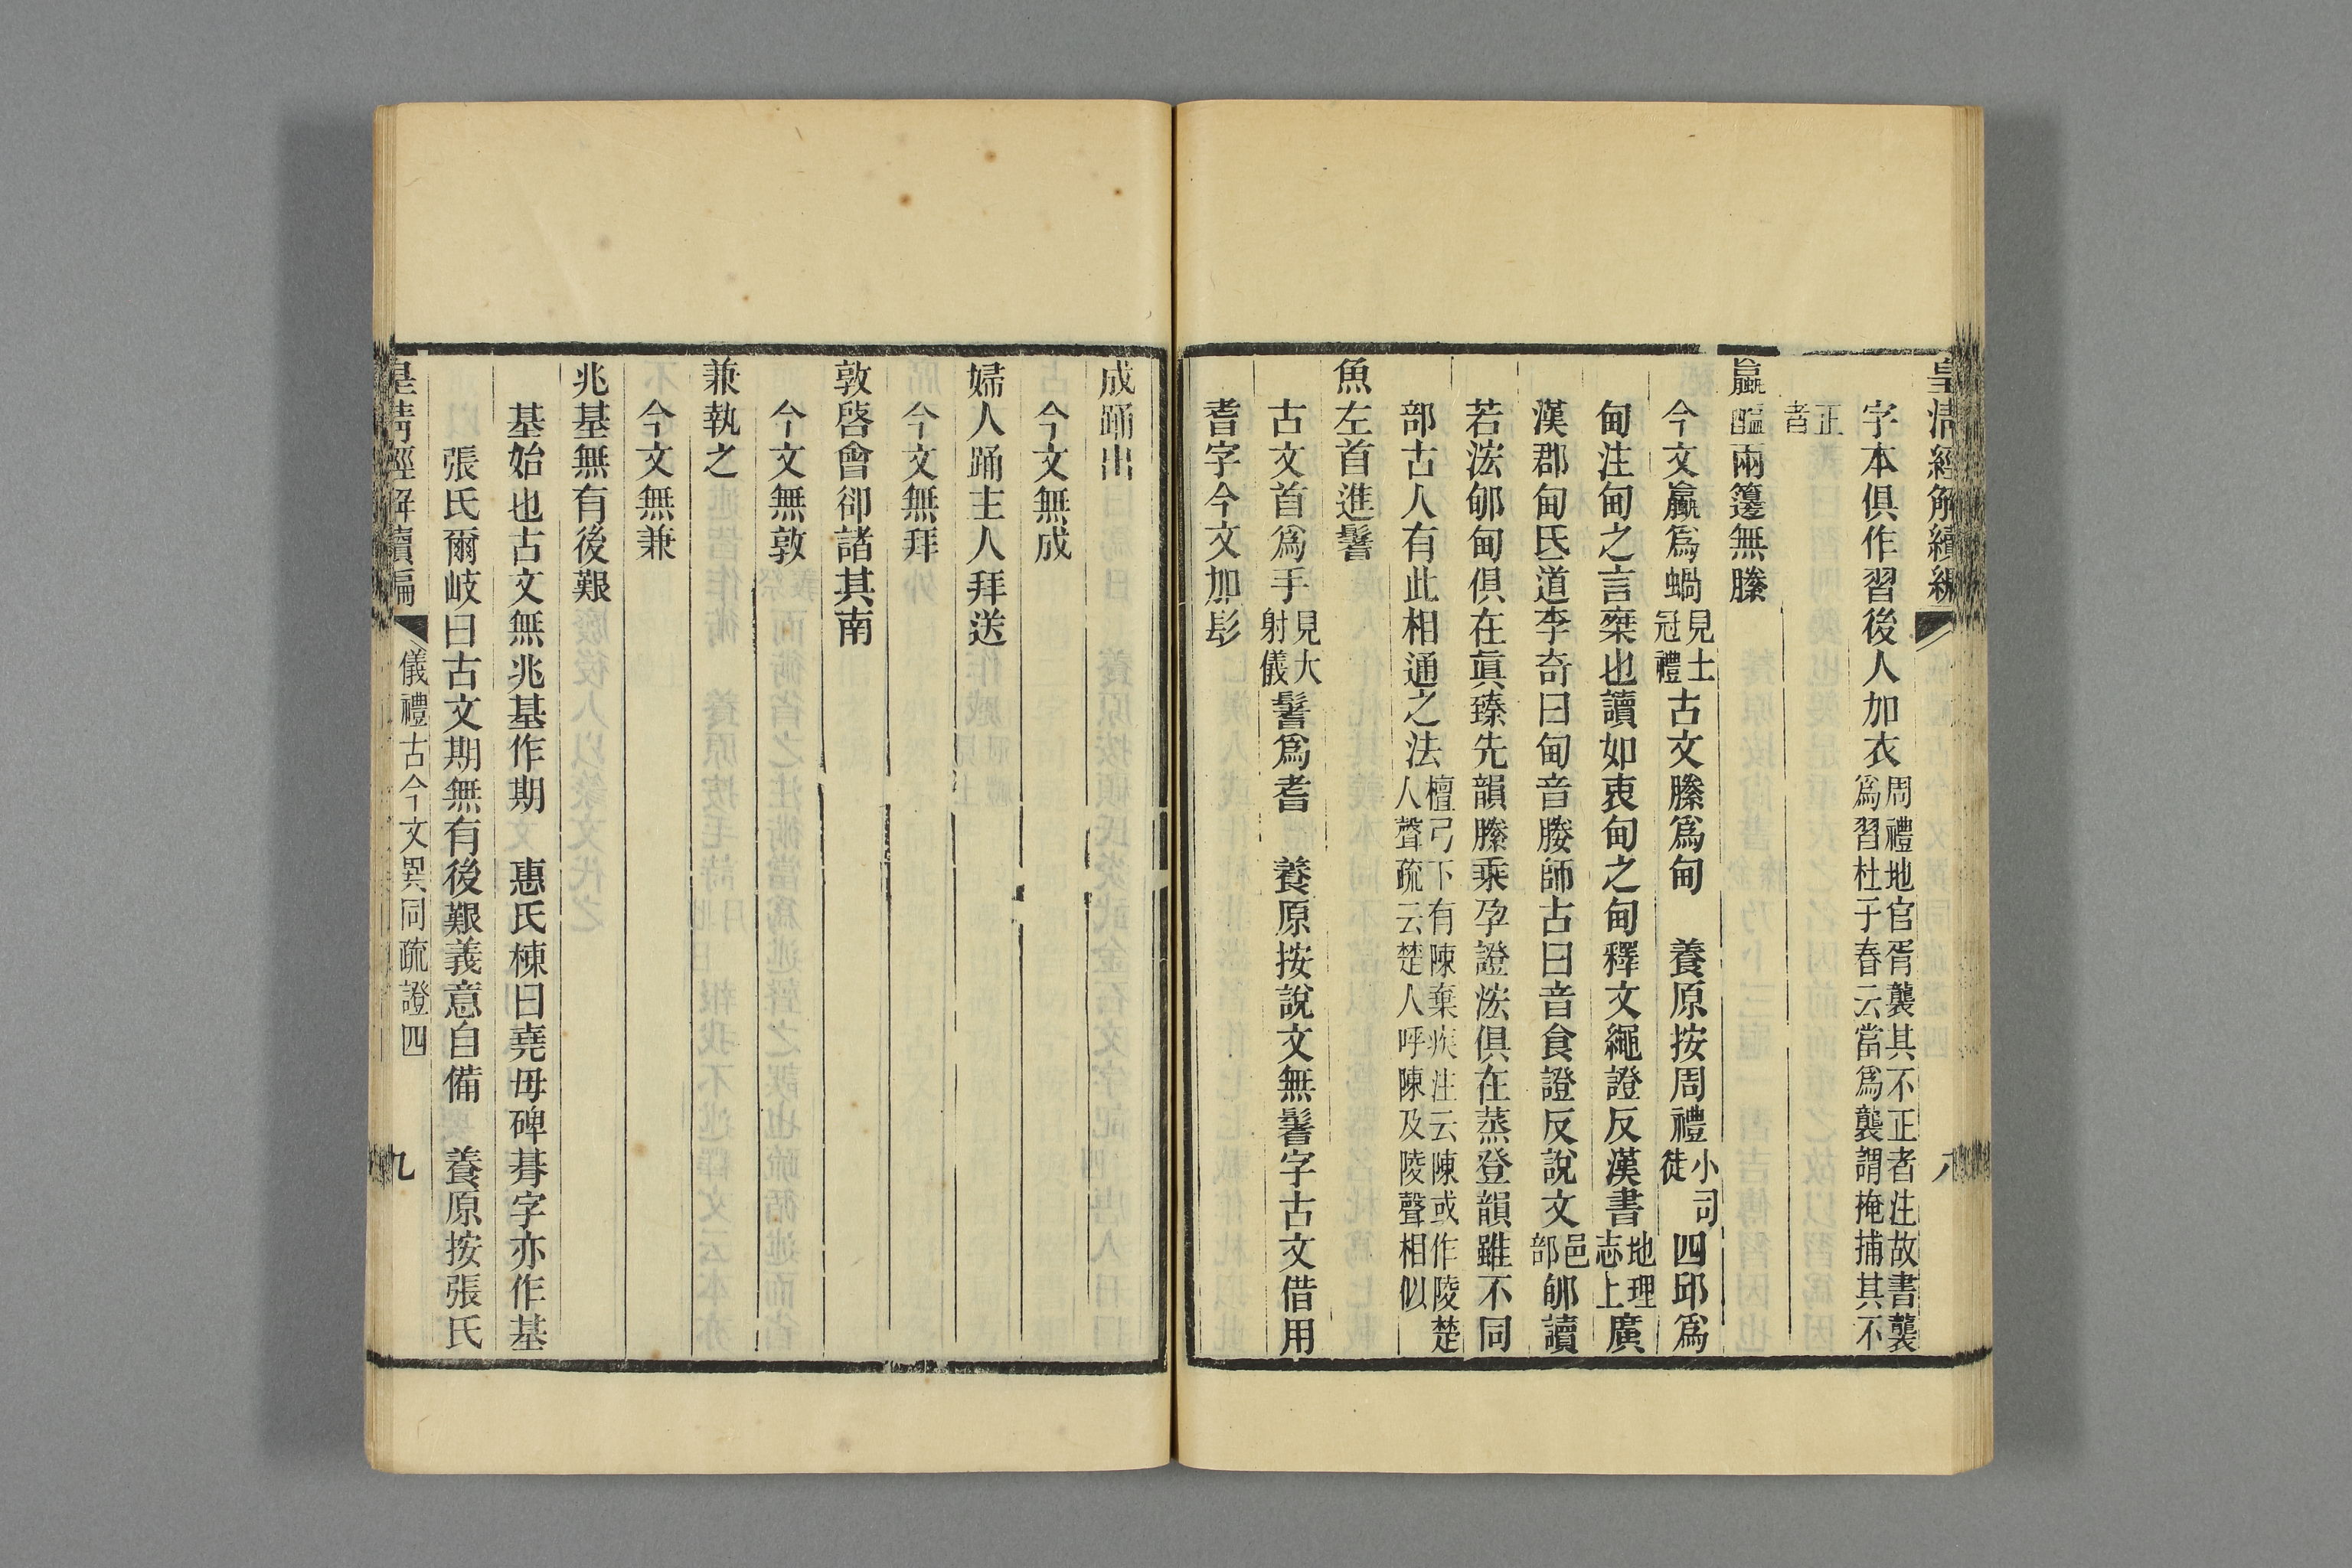 皇清經解續編 八
字本俱作習後人加衣周禮地官胥襲其不正者注故書襲爲習杜子春云當爲襲謂掩捕其不
正者
蠃醢兩籩無縢
今文蠃爲蝸見士冠禮古文縢爲甸 養原按周禮小司徒四邱爲
甸注甸之言乘也讀如衷甸之甸釋文繩證反漢書地理志上廣
漢郡甸氐道李奇曰甸音媵師古曰音食證反說文邑部邮讀
若泓邮甸俱在眞臻先韻縢乘孕證泓俱在蒸登韻雖不同
部古人有此相通之法檀弓下有陳棄疾注云陳或作陵楚人聲疏云楚人呼陳及陵聲相似
魚左首進鬐
古文首爲手見大射儀鬐爲耆 養原按說文無鬐字古文借用
耆字今文加髟
成踊出
今文無成
婦人踊主人拜送
今文無拜
敦啓會卻諸其南
今文無敦
兼執之
今文無兼
兆基無有後艱
基始也古文無兆基作期 惠氏棟曰堯母碑朞字亦作基
張氏爾岐曰古文期無有後艱義意自備 養原按張氏
皇清經解續編 儀禮古今文異同疏證四 九